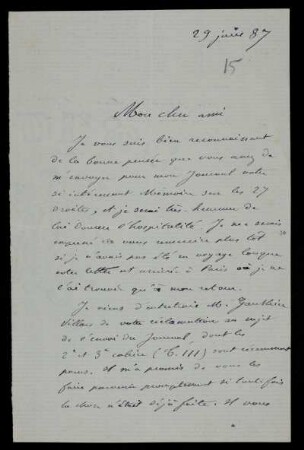 29 juin 87
15
Mon cher ami
Je vous suis bien reconnaissant
de la bonne pensée que vous avez de
m'envoyer pour mon Journal votre
si intéressant Mémoire sur les 27
droites, et je serai très heureux de
lui donner l'hospitalité. Je me serais
empressé de vous remercier plus tôt
si je n'avais pas été en voyage lorsque
votre lettre est arrivée à Paris où je ne
l'ai trouvée qu'à mon retour.
Je viens d'entretenir M. Gauthier
Villars de votre réclamation au sujet
de l'envoi du Journal, dont les
2e et 3e cahiers (T. III) sont récemment
parus. Il m'a promis de vous les
faire parvenir promptement si toutefois
la chose n'était déjà faite. Il vous